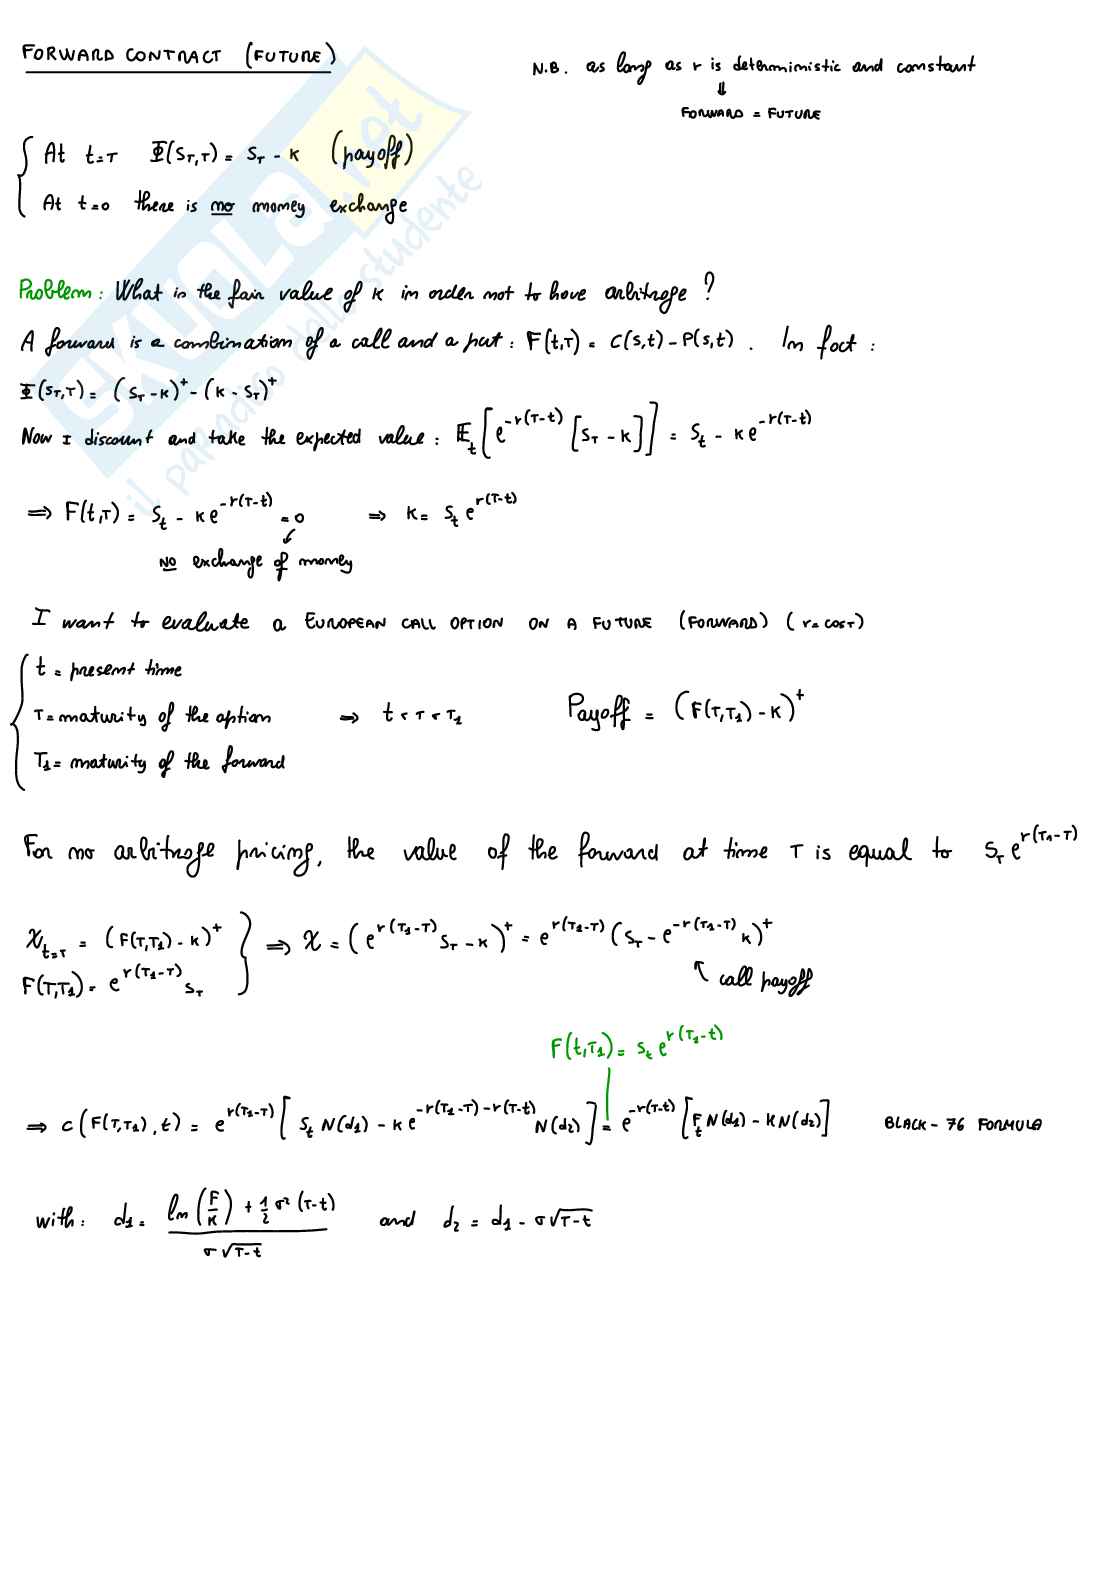 FORWARD CONTRACT (FUTURE)
N.B. as long as r is deterministic and constant
⇓
FORWARD = FUTURE
At t=T Φ(S_T,T) = S_T - K (payoff)
At t=0 there is no money exchange
Problem: What is the fair value of K in order not to have arbitrage?
A forward is a combination of a call and a put: F(t,T) = C(S,t) - P(S,t). In fact:
Φ(S_T,T) = (S_T - K)^+ - (K - S_T)^+
Now I discount and take the expected value: E_t[e^{-r(T-t)}[S_T - K]] = S_t - Ke^{-r(T-t)}
⇒ F(t,T) = S_t - Ke^{-r(T-t)} = 0 ⇒ K = S_t e^{r(T-t)}
NO exchange of money
I want to evaluate a EUROPEAN CALL OPTION ON A FUTURE (FORWARD) (r=COST)
t = present time
T = maturity of the option ⇒ t < T < T_1 Payoff = (F(T,T_1) - K)^+
T_1 = maturity of the forward
For no arbitrage pricing, the value of the forward at time T is equal to S_T e^{r(T_1-T)}
X_{t=T} = (F(T,T_1) - K)^+
F(T,T_1) = e^{r(T_1-T)} S_T
⇒ X = (e^{r(T_1-T)} S_T - K)^+ = e^{r(T_1-T)} (S_T - e^{-r(T_1-T)} K)^+
↖ call payoff
F(t,T_1) = S_t e^{r(T_1-t)}
⇒ C(F(T,T_1),t) = e^{r(T_1-T)} [S_t N(d_1) - Ke^{-r(T_1-T)-r(T-t)} N(d_2)] = e^{-r(T-t)} [F_t N(d_1) - KN(d_2)] BLACK-76 FORMULA
with: d_1 = \frac{ln(\frac{F}{K}) + \frac{1}{2}σ^2(T-t)}{σ√{T-t}} and d_2 = d_1 - σ√{T-t}
SKUOLA.net
il paradiso dello studente